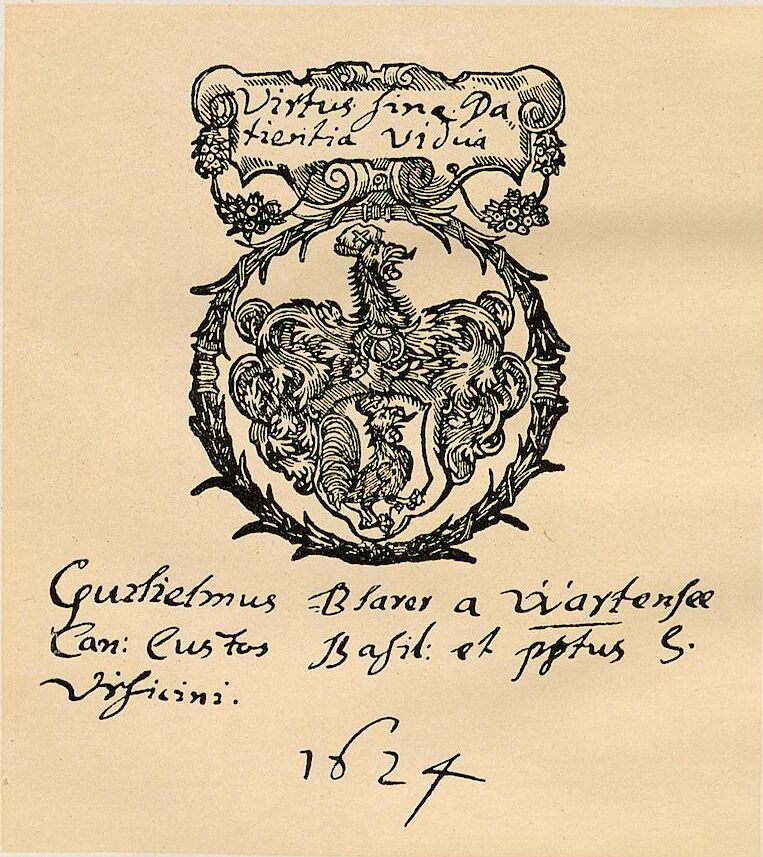 Virtus sine Pa„
tientia Vidua
Guilielmus Blarer a Wartensee
Can: Custos Basil: et pptus S.
Ursicini.
1624